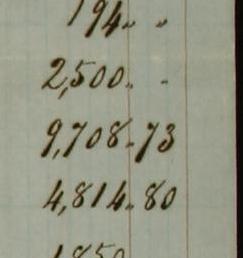 194 " "
2,500 " "
9,708 . 73
4,814 . 80
1850